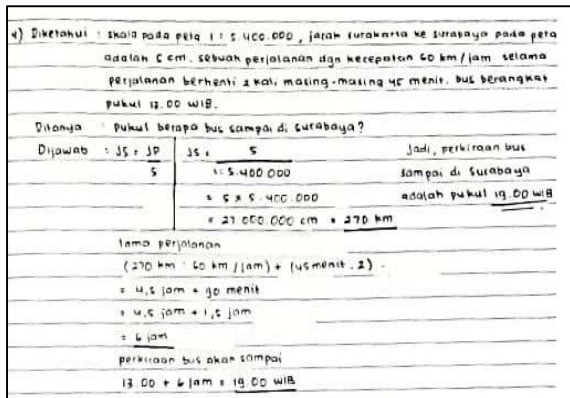 4) Diketahui : skala pada peta 1 : 5.400.000, jarak surakarta ke surabaya pada peta
adalah 5 cm. sebuah perjalanan dgn kecepatan 60 km/jam selama
perjalanan berhenti 2 kali, masing-masing 45 menit. bus berangkat
pukul 13.00 WIB.
Ditanya : Pukul berapa bus sampai di surabaya?
Dijawab : JS = JP JS = 5 Jadi, perkiraan bus
S 1 : 5.400 000 sampai di Surabaya
= 5 x 5.400.000 adalah pukul 19.00 WIB
= 27 000.000 cm = 270 km
lama perjalanan
(270 km : 60 km/jam) + (45 menit . 2) .
= 4,5 jam + 90 menit
= 4,5 jam + 1,5 jam
= 6 jam
perkiraan bus akan sampai
13.00 + 6 jam = 19.00 WIB